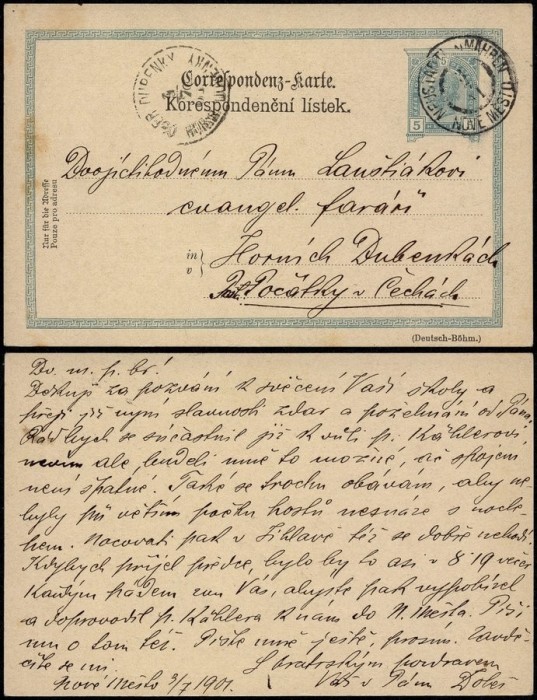 Correspondenz-Karte.
Korespondenční lístek.
OBER DUBENKY
NEUSTADTL MÄHREN
NOVÉ MĚSTO
5
Nur für die Adresse
Pouze pro adresu
Dvojctihodnému Pánu Lauštiákovi
evangel. faráři
in
v
Horních Dubenkách
Počátky v Čechách
(Deutsch-Böhm.)
Dv. m. p. br.!
Děkuji za pozvání k svěcení Vaší školy a
přeji již nyní slavnosti zdar a požehnání od Pána.
Rád bych se súčastnil již k vůli p. Kählerovi,
nevím ale, bude-li mně to možné, ač spojení
není špatné. Také se trochu obávam, aby ne-
byly při větším počtu hostů nesnáze s nocle-
hem. Nocovati pak v Jihlavě též se dobře nehodí.
Kdybych přijel předce, bylo by to asi v 8 19 večer.
Každým pádem zvu Vás, abyste pak vypobízel
a doprovodil p. Kählera k nám do N. Města. Píši
mu o tom též. Pište mně ještě, prosím. Zavdě-
číte se mi.
S bratrským pozdravem
Nové Město 3/7 1901.
Váš v Pánu Dobeš